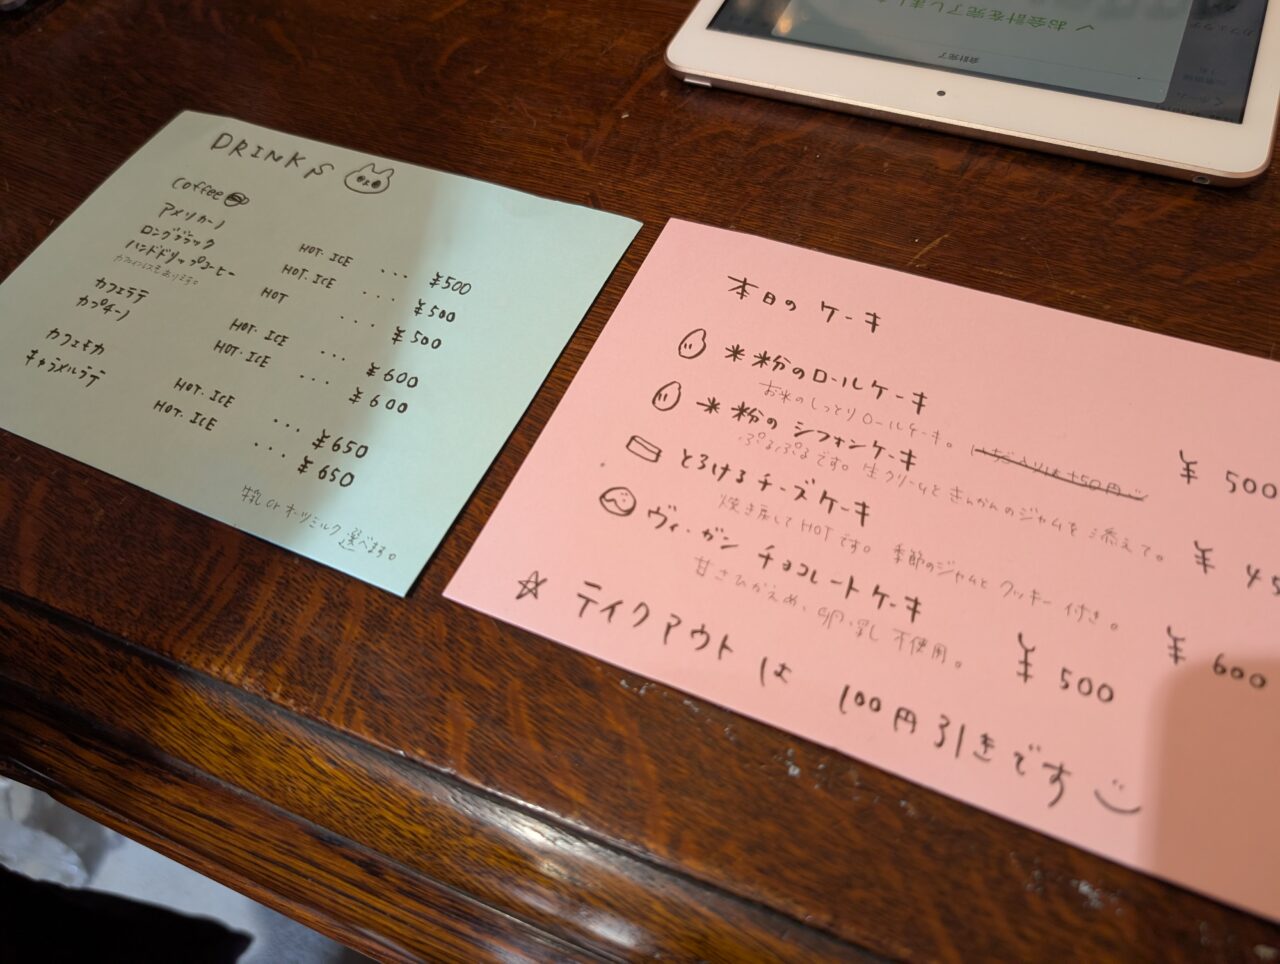 DRINKS
Coffee
アメリカーノ HOT. ICE ... ¥500
ロングブラック HOT. ICE ... ¥500
ハンドドリップコーヒー HOT ... ¥500
カフェインレスもあります。
カフェラテ HOT. ICE ... ¥600
カプチーノ HOT. ICE ... ¥600
カフェモカ HOT. ICE ... ¥650
キャラメルラテ HOT. ICE ... ¥650
牛乳 or オーツミルク 選べます。
本日の ケーキ
米粉のロールケーキ ¥500
お米のしっとりロールケーキ。 いちご入りは+50円
米粉の シフォンケーキ ¥45
ぷるぷるです。生クリームときんかんのジャムを添えて。
とろけるチーズケーキ ¥600
焼き戻してHOTです。季節のジャムとクッキー付き。
ヴィーガン チョコレートケーキ ¥500
甘さひかえめ、卵・乳 不使用。
☆ テイクアウトは 100円引きです
✓ お会計を完了しました
会計完了